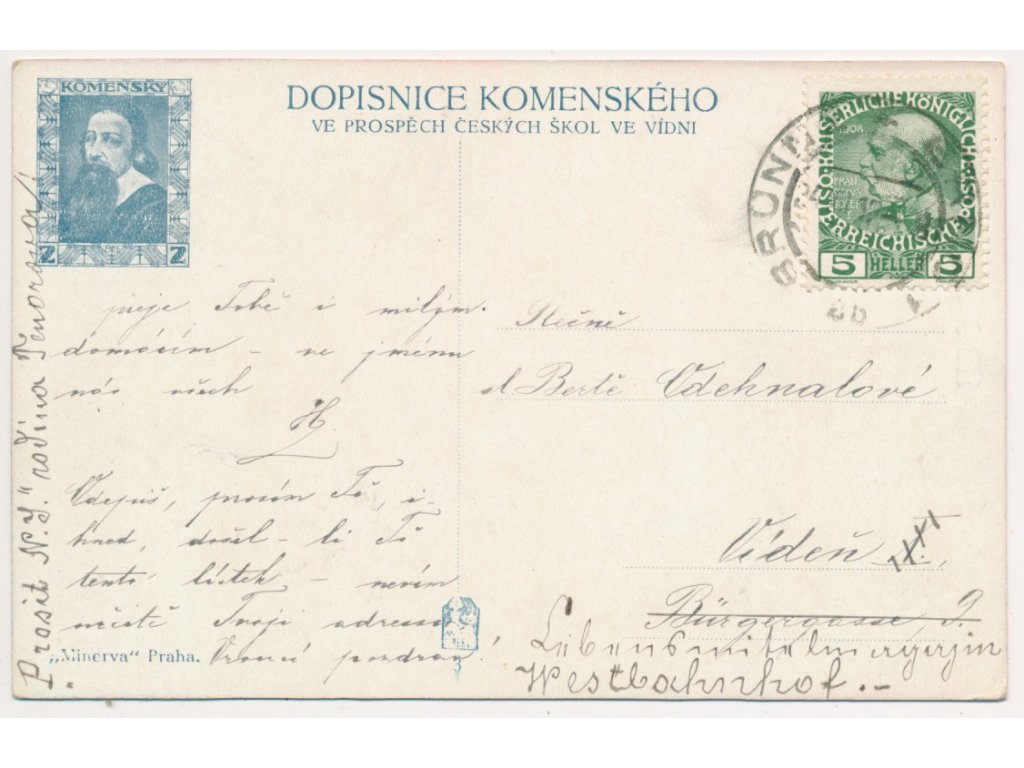 KOMENSKÝ
2 2
DOPISNICE KOMENSKÉHO
VE PROSPĚCH ČESKÝCH ŠKOL VE VÍDNI
KAISERLICHE KÖNIGLICHE
ÖSTERREICHISCHE POST
1908
5 HELLER 5
BRÜNN
přeje Tobě i milým
domácím – ve jménu
nás všech
Odepiš, prosím Tě, i-
hned, došel-li Tě
tento lístek – nevím
určitě Tvoji adresu
Vroucí pozdrav!
Prosit N.J." rodina Tenorova!
Slečně
sl Bertě Odehnalové
Vídeň
Bürgergasse, 9.
Lebensmittelmagazin
Westbahnhof.–
„Minerva“ Praha.